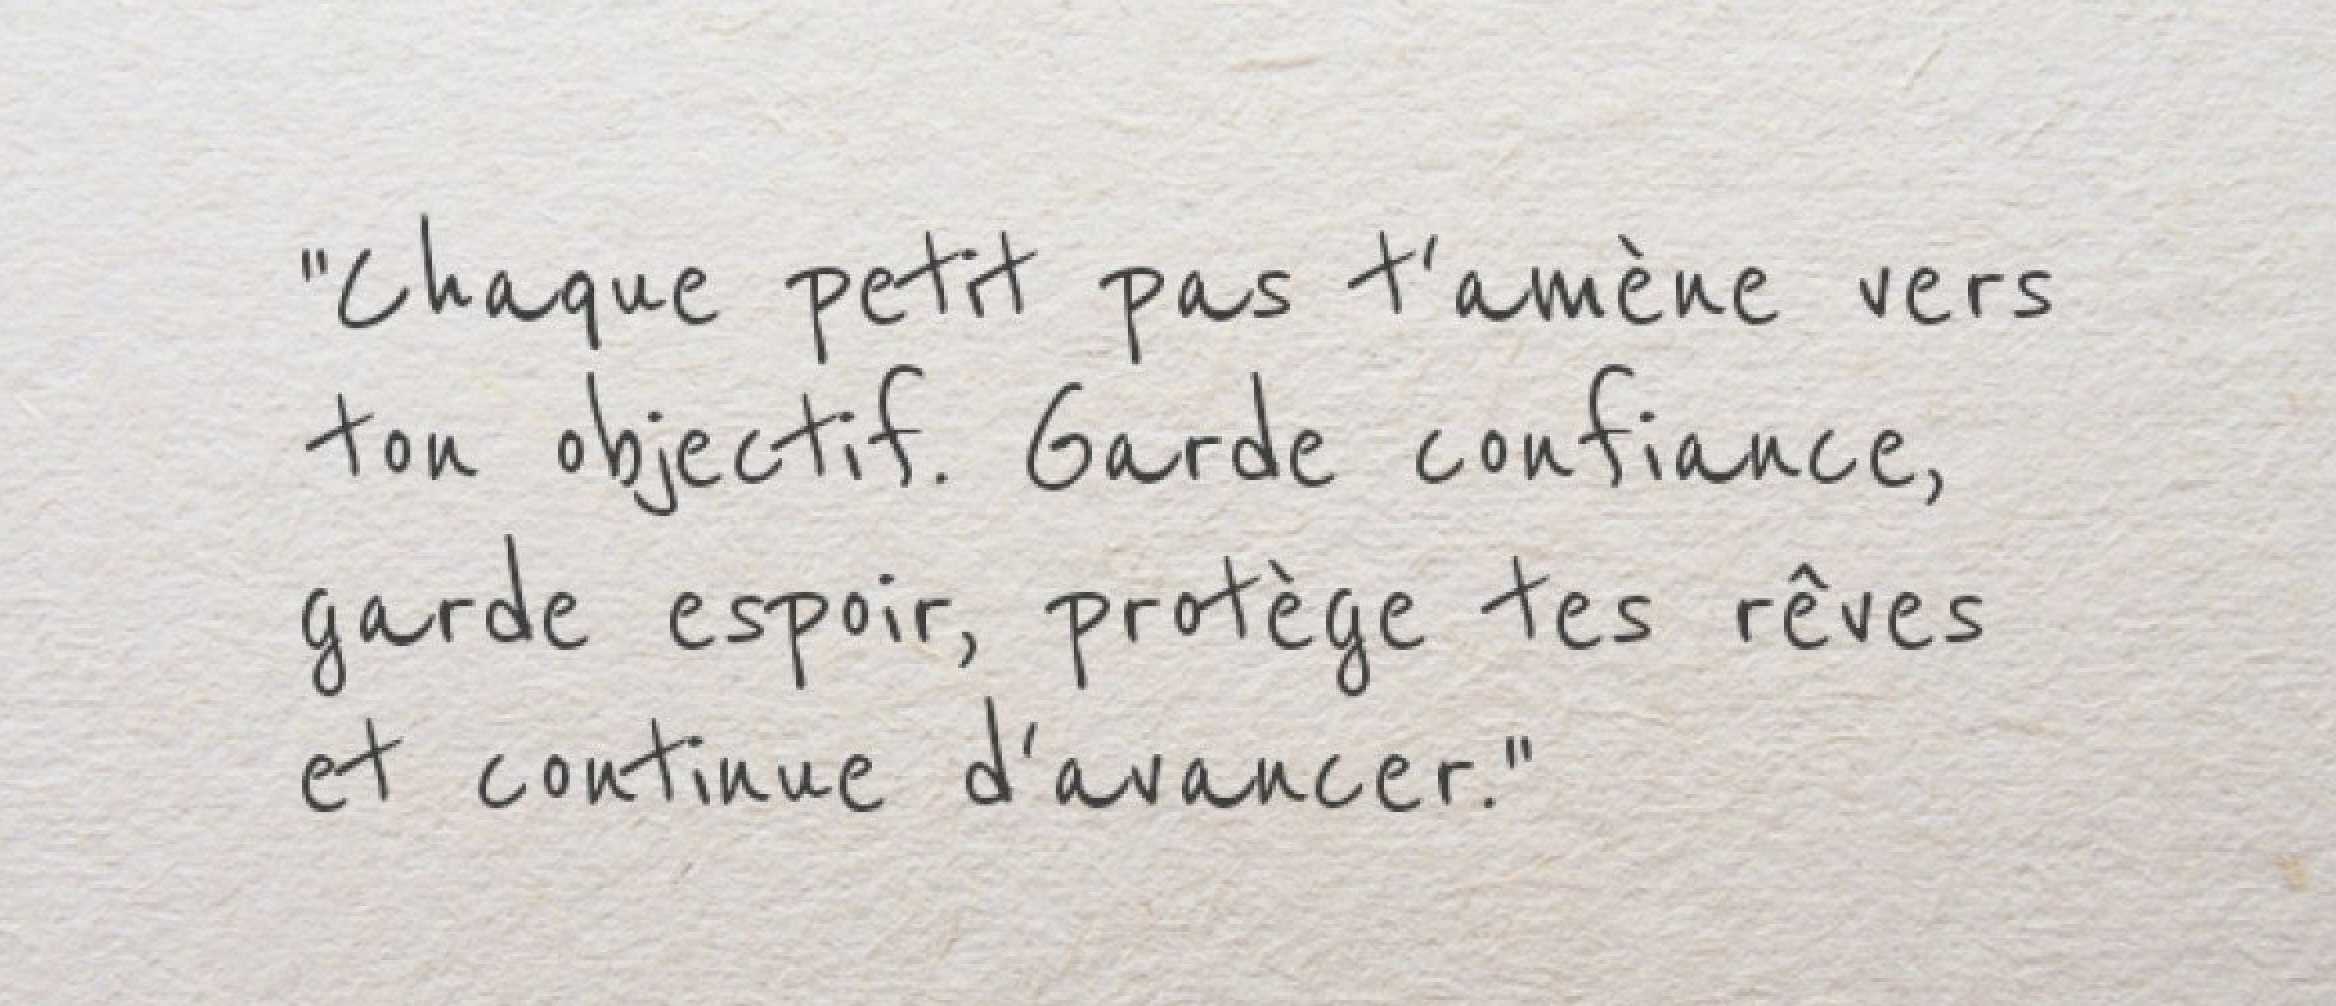 "Chaque petit pas t'amène vers
ton objectif. Garde confiance,
garde espoir, protège tes rêves
et continue d'avancer."